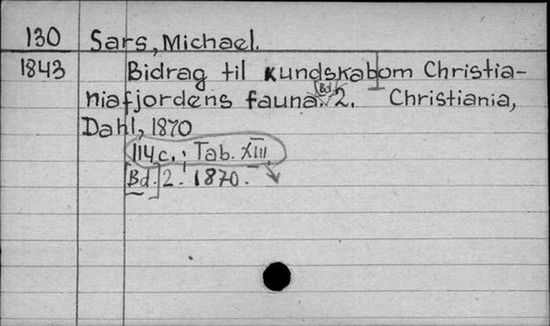 130 Sars, Michael.
1843 Bidrag til kundskab om Christia-
niafjordens fauna. Bd. 2. Christiania,
Dahl, 1870
114 c.; Tab. XIII
[Bd.] 2. 1870.